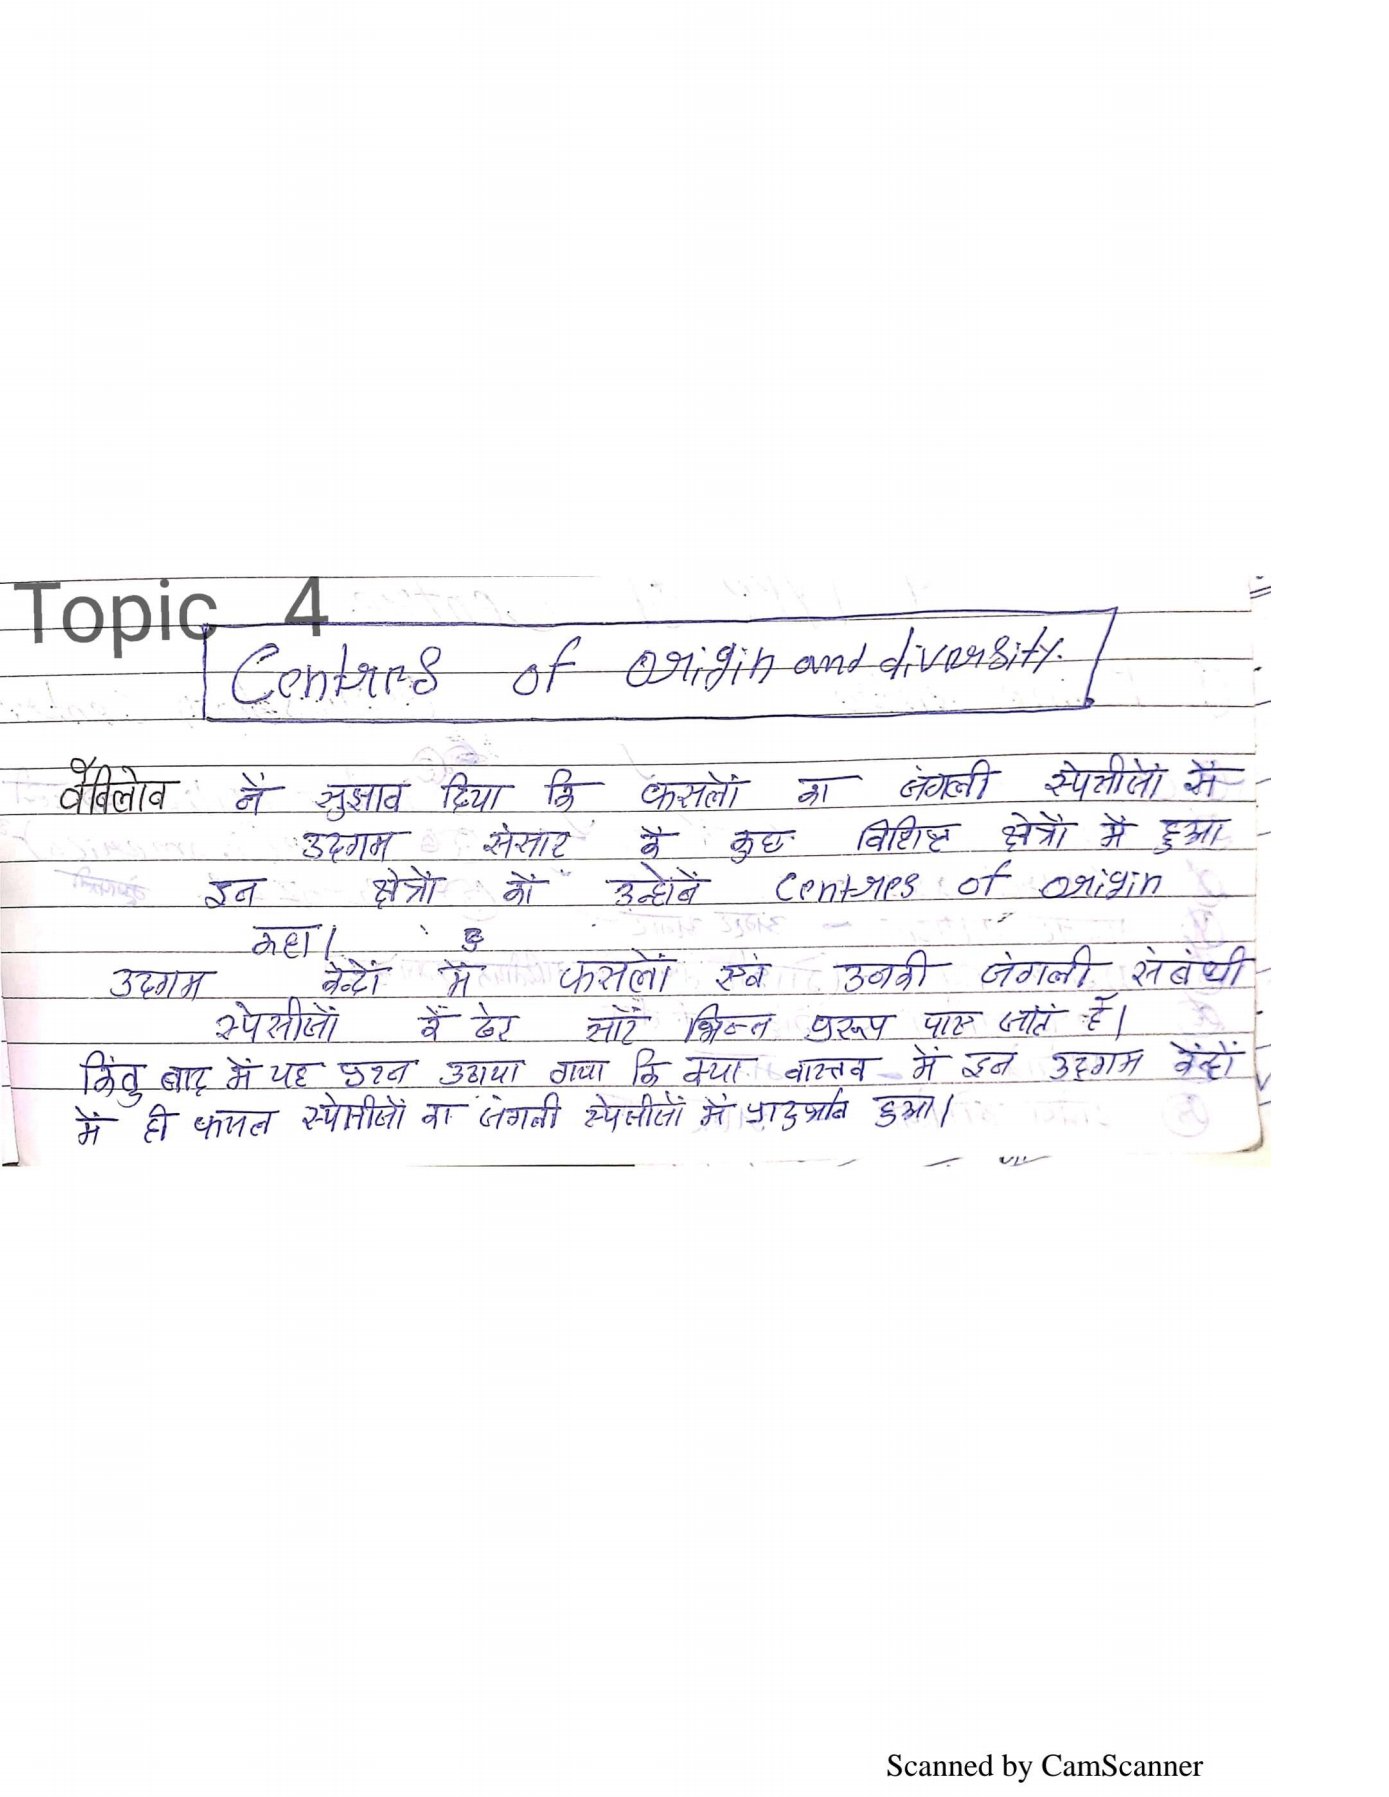 Topic 4
Centres of origin and diversity.
वैविलोव ने सुझाव दिया कि फसलों का जंगली स्पेसीजों से
उदगम संसार के कुछ विशिष्ट क्षेत्रों में हुआ
इन क्षेत्रों को उन्होंने Centres of origin
कहा।
उदगम केन्द्रों में फसलों एवं उनकी जंगली संबंधी
स्पेसीजों के ढेर सारे भिन्न प्ररूप पाए जाते हैं।
किंतु बाद में यह प्रश्न उठाया गया कि क्या वास्तव में इन उदगम केन्द्रों
में ही फसल स्पेसीजों का जंगली स्पेसीजों में प्रादुर्भाव हुआ।
Scanned by CamScanner